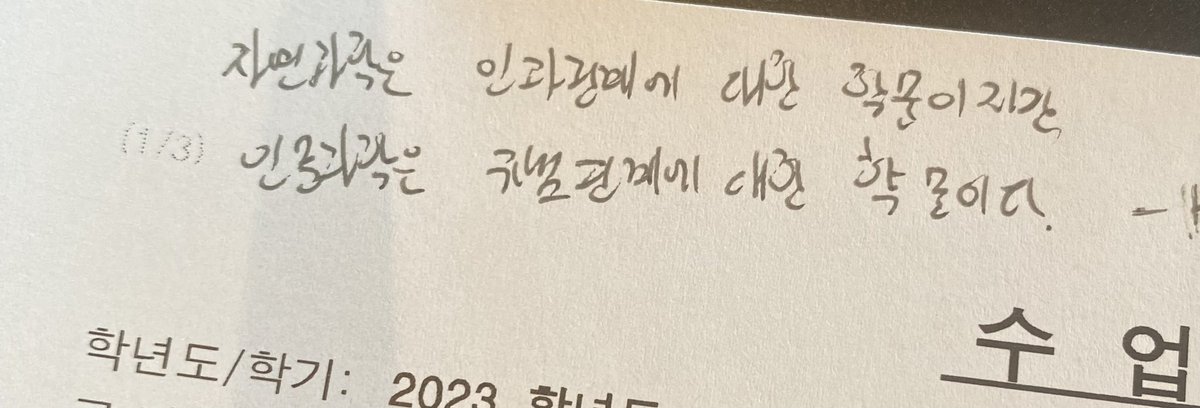 자연과학은 인과관계에 대한 학문이지만
(1/3)
인문과학은 규범관계에 대한 학문이다. -
수 업
학년도/학기: 2023 학년도